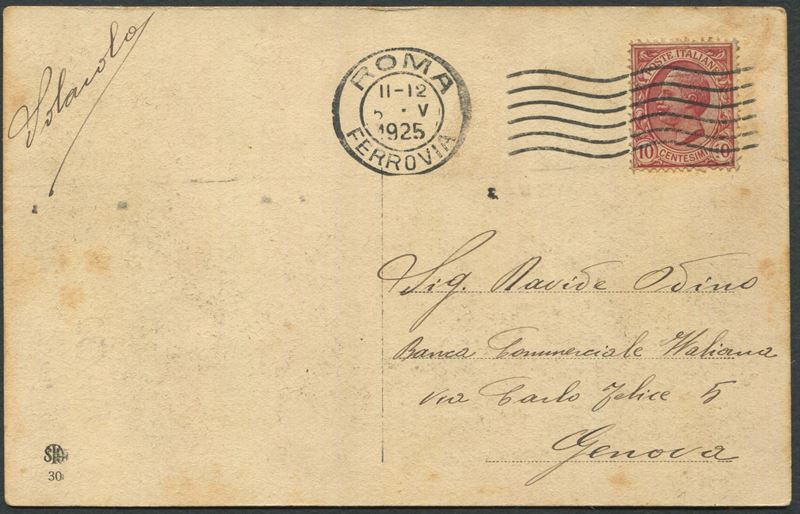 ROMA
11-12
V
1925
FERROVIA
POSTE ITALIANE
10 CENTESIMI 10
Sig. Davide Odino
Banca Commerciale Italiana
Via Carlo Felice 5
Genova
30